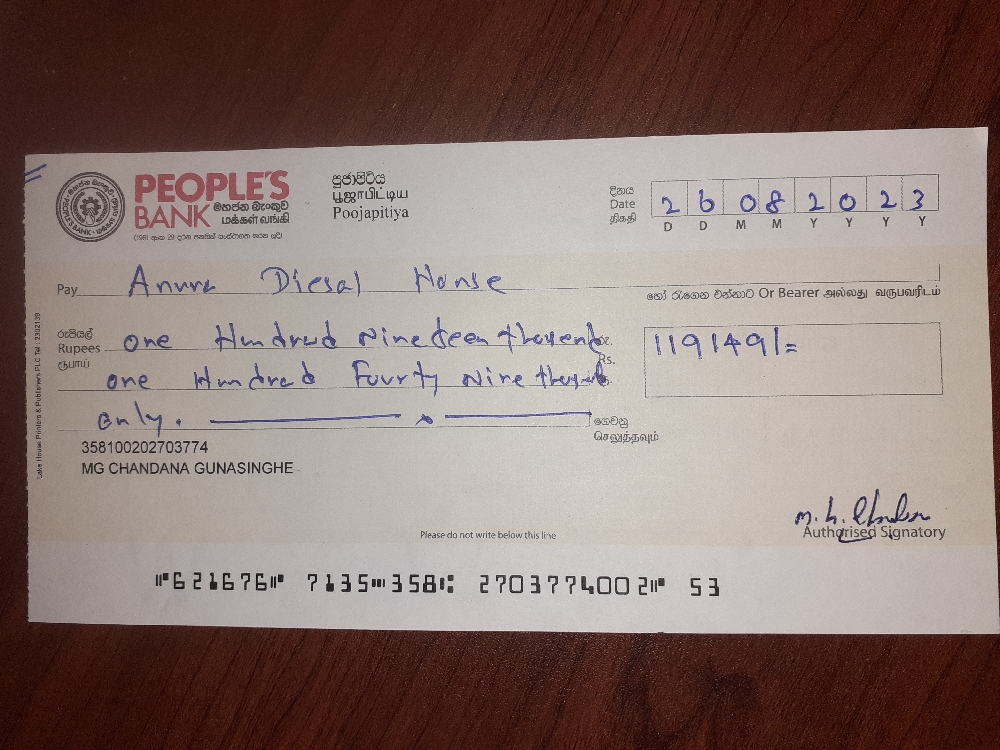 PEOPLE'S
BANK මහජන බැංකුව
மக்கள் வங்கி
(1961 අංක 29 දරන පනතින් සංස්ථාගත කරන ලදි)
පූජාපිටිය
பூஜாபிட்டிய
Poojapitiya
දිනය
Date
திகதி
2 6 0 8 2 0 2 3
D D M M Y Y Y Y
Pay Anura Diesal House
හෝ රැගෙන එන්නාට Or Bearer அல்லது வருபவரிடம்
රුපියල්
Rupees one Hundred Nineteen
ரூபாய்
one Hundred Fourty Nine
only.
Rs.
119149/=
ගෙවනු
செலுத்தவும்
358100202703774
MG CHANDANA GUNASINGHE
Lake House Printers & Publishers PLC Tel : 2302139
Authorised Signatory
Please do not write below this line
⑈621676⑈ 7135⑉358⑆ 2703774002⑈ 53